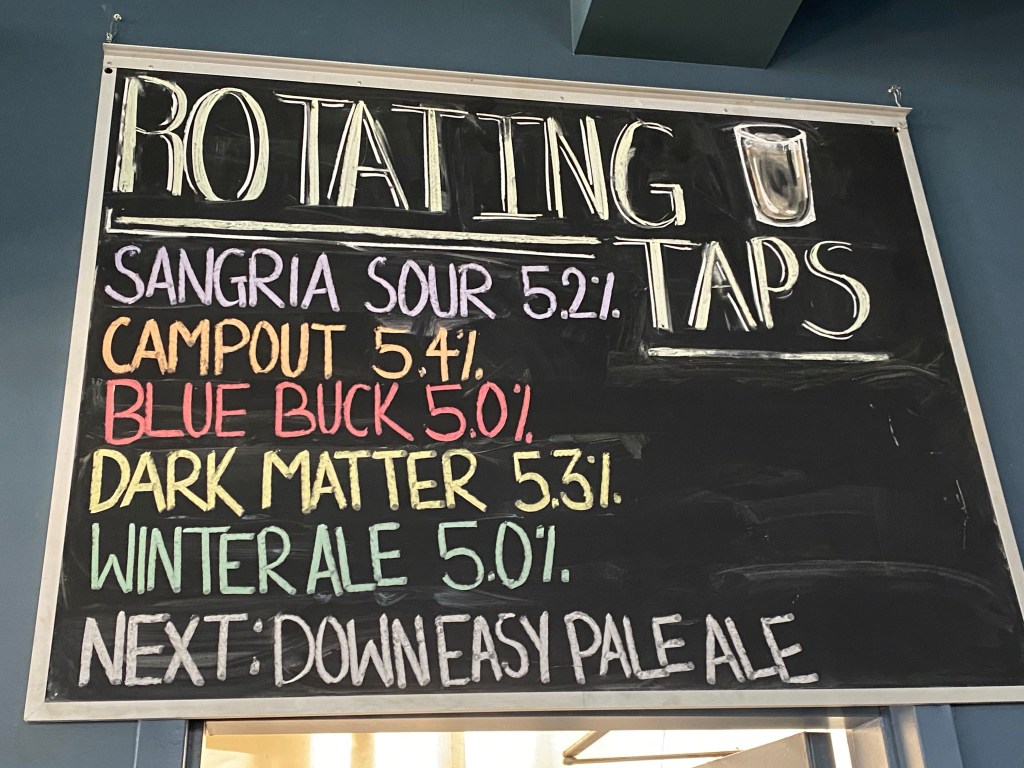 ROTATING
TAPS
SANGRIA SOUR 5.2%
CAMPOUT 5.4%
BLUE BUCK 5.0%
DARK MATTER 5.3%
WINTER ALE 5.0%
NEXT: DOWN EASY PALE ALE